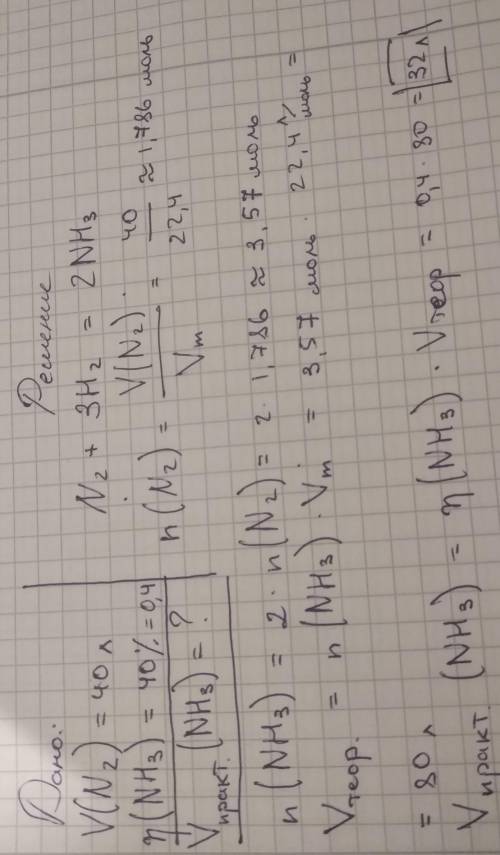 Дано:
V(N₂) = 40 л
η(NH₃) = 40% = 0,4
Vпракт. (NH₃) = ?
Решение
N₂ + 3H₂ = 2NH₃
n(N₂) = V(N₂) / Vm = 40 / 22,4 ≈ 1,786 моль
n(NH₃) = 2 · n(N₂) = 2 · 1,786 ≈ 3,57 моль
Vтеор. = n(NH₃) · Vm = 3,57 моль · 22,4 л/моль =
= 80 л
Vпракт. (NH₃) = η(NH₃) · Vтеор = 0,4 · 80 = 32 л